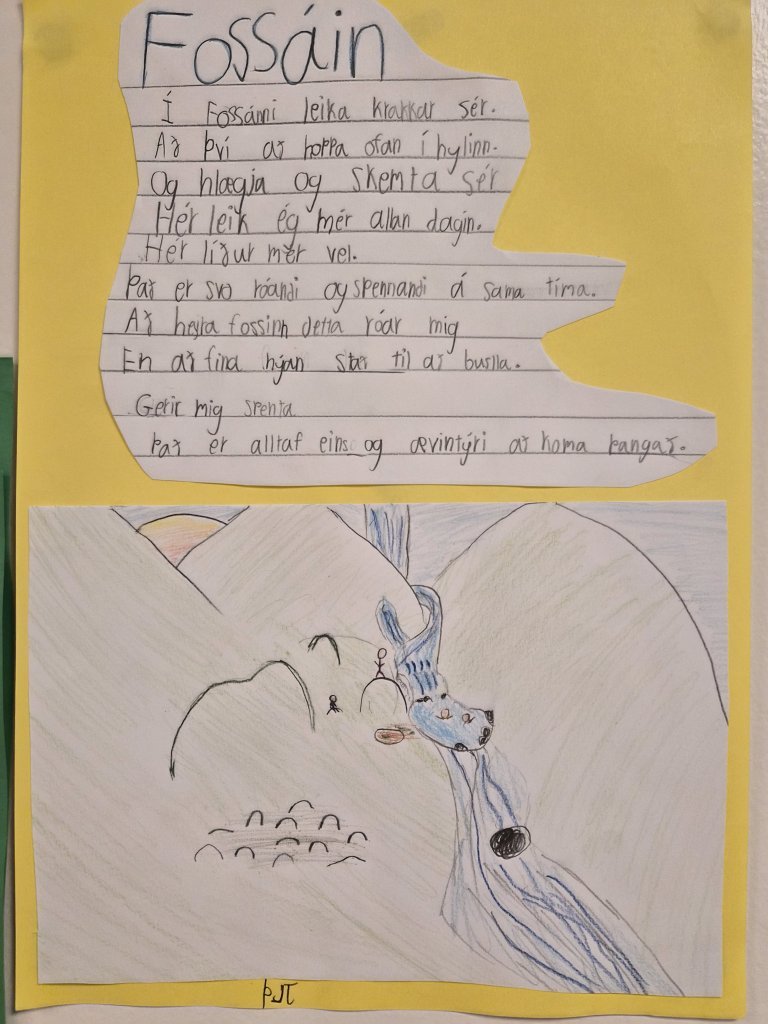 Fossáin
Í Fossánni leika krakkar sér.
Að því að hoppa ofan í hylinn.
Og hlægja og skemta sér
Hér leik ég mér allan dagin.
Hér líður mér vel.
Það er svo róandi og spennandi á sama tíma.
Að heyra fossinn detta róar mig
En að fina hýan stað til að buslla.
Gerir mig spenta
Það er alltaf eins og ævintýri að koma þangað.